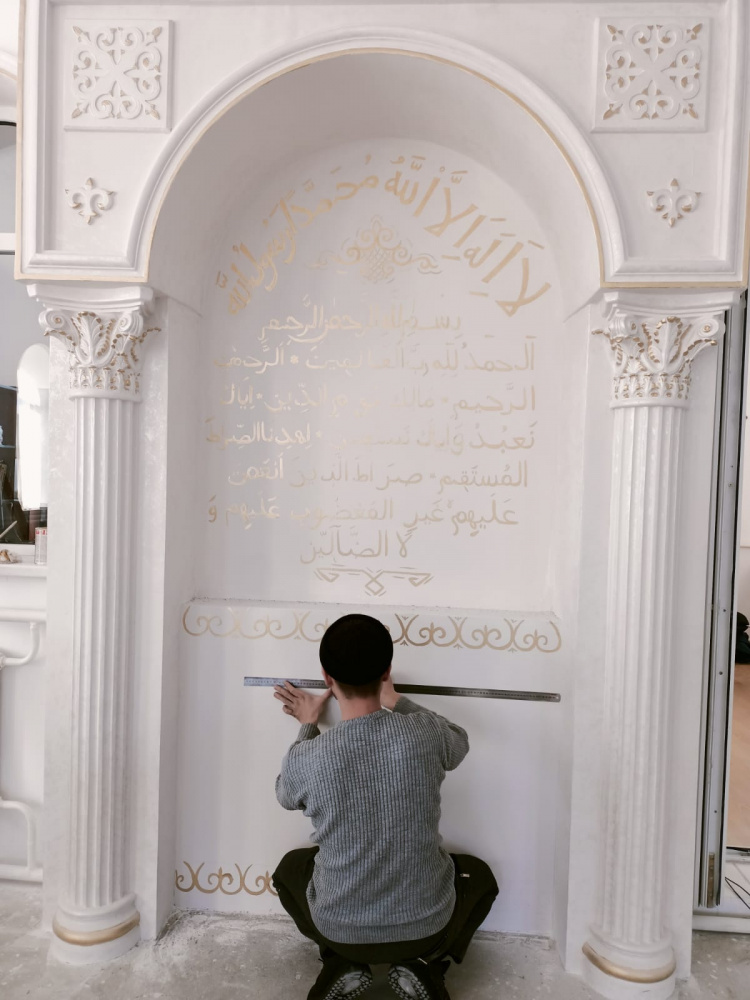 لا اله الا الله محمد رسول الله
بسم الله الرحمن الرحيم
الحمد لله رب العالمين * الرحمن
الرحيم * مالك يوم الدين * اياك
نعبد وإياك نستعين * اهدنا الصراط
المستقيم * صراط الذين أنعمت
عليهم غير المغضوب عليهم و
لا الضالين